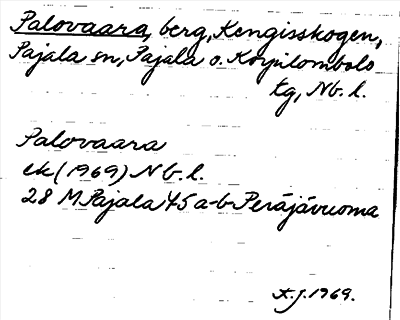 Palovaara, berg, Kengisskogen,
Pajala sn, Pajala o. Korpilombolo
tg, Nb. l.
Palovaara
ek (1969) Nb. l.
28 M Pajala 45 a-b Peräjävuoma
A.J. 1969.